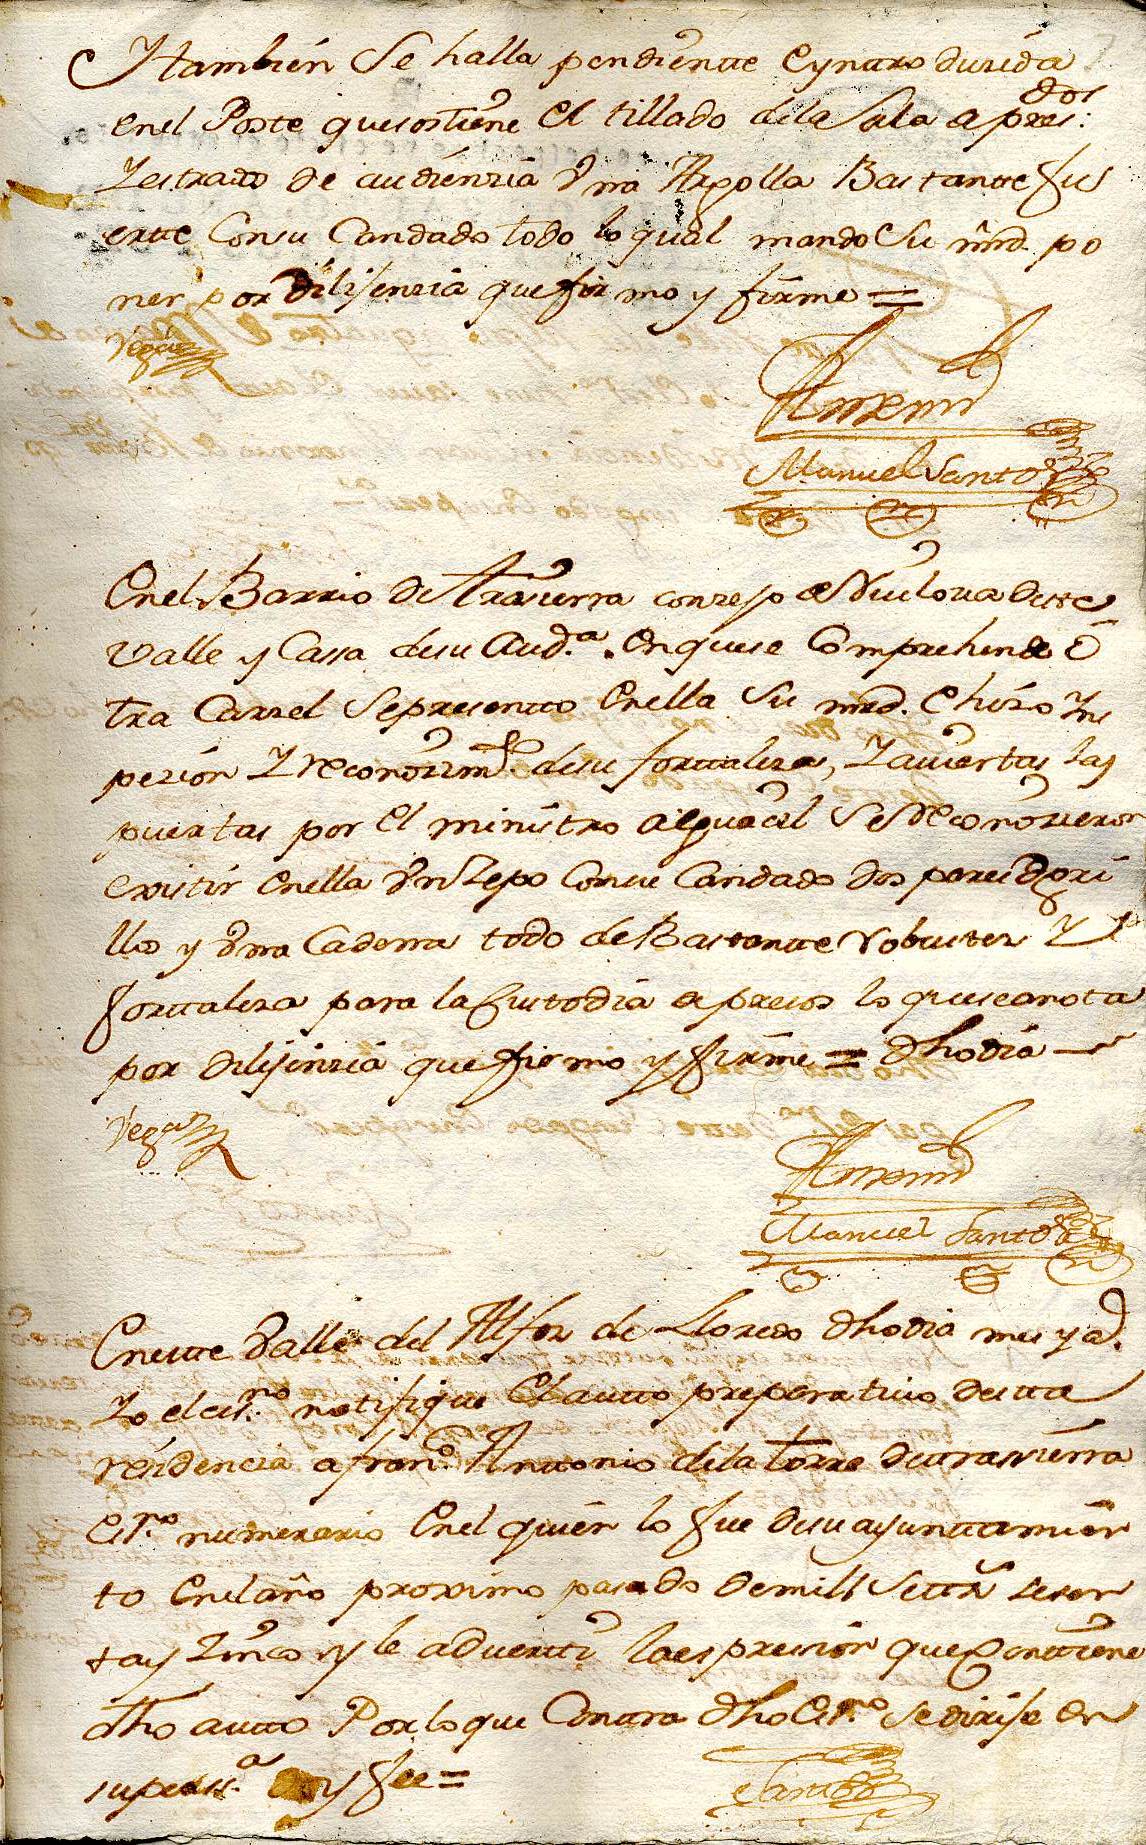 Ytambien Se halla pendiente eyntroduzida
enel Poste quesostiene el tillado dela Sala apres:dos
Zestrado de audienzia vna Argolla Bastante fu
erte Consu Candado todo lo qual mando Su mrd. po
ner por dilijenzia que firmo y firme =
Vega
Antemi
Manuel Santos
Enel Barrio de Trasierra conzejo de Ruiloua deste
Valle y Cassa desu Aud.a Enquese Comprehende o
tra Carzel Sepresento Enella Su mrd. e hizo Yns
pezion Y reconozim.to desu fortaleza, Y auiertas las
puertas por el ministro alguacil Se Reconozieron
existir enella vn Zepo Consu Candado dos pares de gri
llos y vna Cadena todo de Bastante robustez Y
fortaleza para la Custodia de presos lo quese anota
por dilijenzia que firmo y firme = dho dia
Vega
Antemi
Manuel Santos
Eneste Valle del Alfoz de Lloredo dho dia mes y a.
Yo el es.no notifique El auto preparatiuo desta
residencia a fran.co Antonio dela Torre de trasierra
Es.no numerario Enel quien lo fue desu ayuntamien
to Enel año proximo pasado de mill Settz.s sesen
ta y Zinco y le aduerti la espresion que Contiene
dho auto Por lo que Contra dho Es.no se dirije en
su pers.a doy fee =
Santos